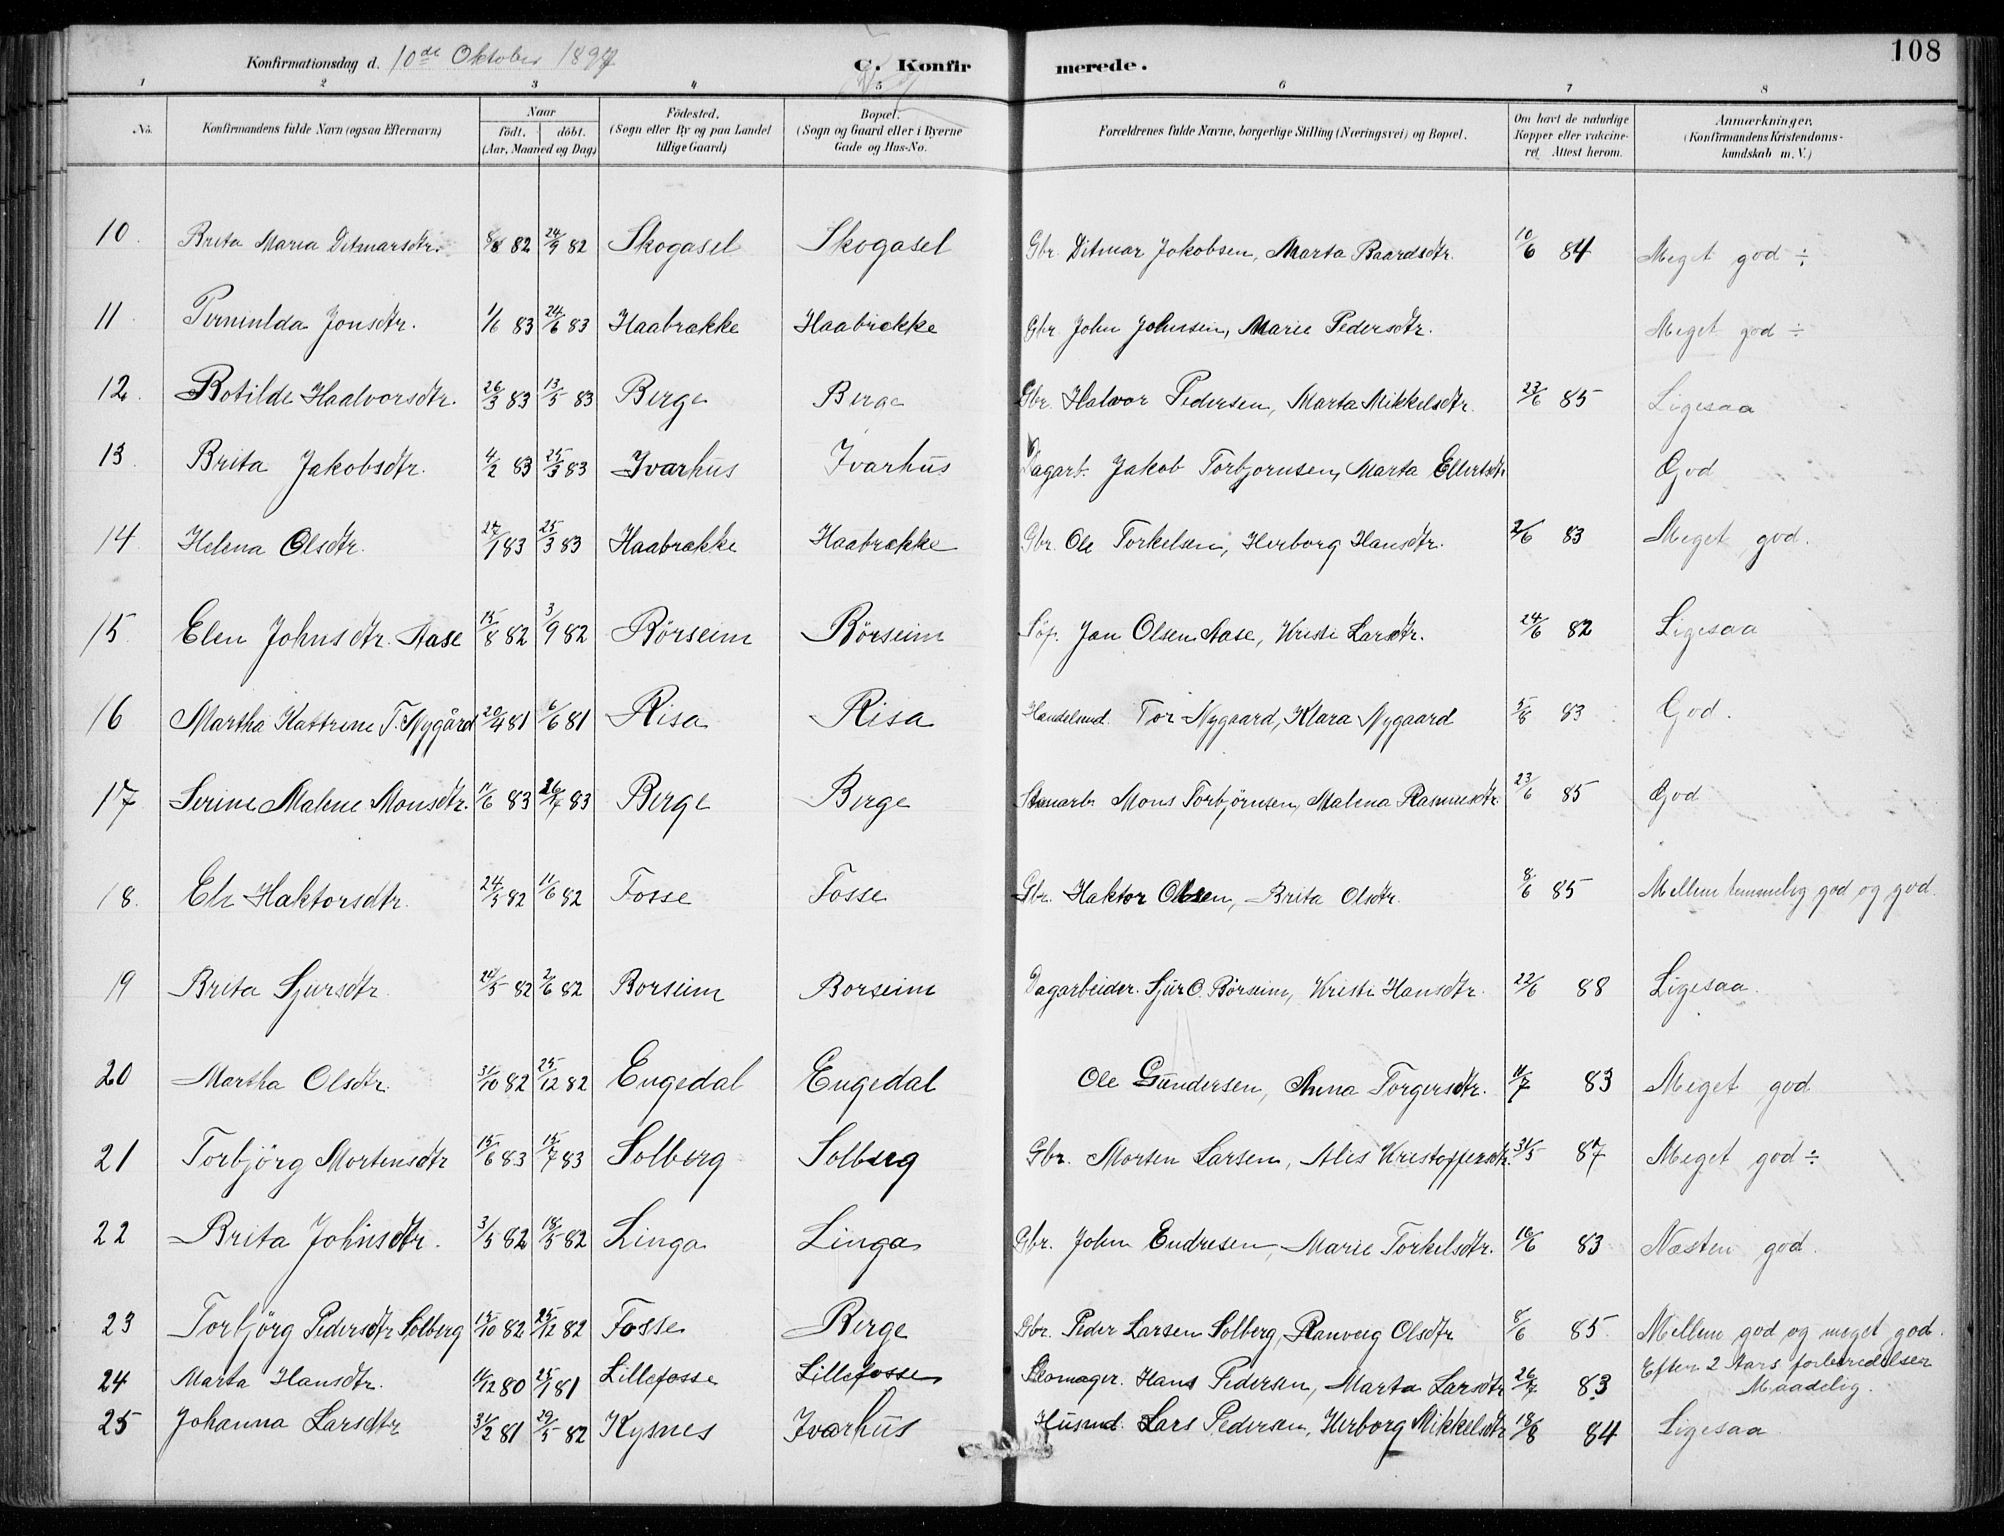 108
Konfirmationsdag d. 10de Oktober 1897 C. Konfirmerede.
1 2 3 4 5 6 7 8
No. Konfirmandens fulde Navn (ogsaa Efternavn) Naar födt. döbt. (Aar, Maaned og Dag) Födested. (Sogn eller By og paa Landet tillige Gaard) Bopæl. (Sogn og Gaard eller i Byerne Gade og Hus-No. Forældrenes fulde Navne, borgerlige Stilling (Næringsvei) og Bopæl. Om havt de naturlige Kopper eller vakcineret Attest herom. Anmærkninger. (Konfirmandens Kristendomskundskab m. V.)
10. Brita Maria Ditmarsdtr. 8/8 82 24/9 82 Skogasel Skogasel Gbr. Ditmar Jakobsen, Marta Baardsdtr. 10/6 84 Meget god ÷
11. Pernilda Jonsdtr. 1/6 83 24/6 83 Haabrække Haabrekke Gbr John Johnsen, Marie Pedersdtr. Meget god ÷
12. Botilde Haalvorsdtr. 26/3 83 13/5 83 Berge Berge Gbr. Halvor Pedersen, Marta Mikkelsdtr. 23/6 85 Ligesaa
13. Brita Jakobsdtr. 4/2 83 25/3 83 Ivarhus Ivarhus Dagarb. Jakob Torbjornsen, Marta Ellertsdtr God
14. Helena Olsdtr. 27/1 83 25/3 83 Haabrække Haabrække Gbr. Ole Torkelsen, Herborg Hansdtr. 2/6 83 Meget god.
15. Elen Johnsdtr. Aase 15/8 82 3/9 82 Rörseim Rörseim Söf. Jon Olsen Aase, Kristi Larsdtr. 24/6 82 Ligesaa
16 Martha Kattrine T. Nygård 20/4 81 6/6 81 Risa Risa Handelsmd. Tor Nygaard, Klara Nygaard 5/8 83 God.
17. Serine Malene Monsdtr. 11/6 83 26/7 83 Berge Berge Stenarb Mons Torbjörnsen, Malena Rasmusdtr 23/6 85 God
18. Eli Haktorsdtr. 24/5 82 11/6 82 Fosse Fosse Gbr. Haktor Olsen, Brita Olsdtr. 8/6 85 Mellem temmelig god og god.
19 Brita Sjursdtr. 24/5 82 2/6 82 Borseim Borseim Dagarbeider. Sjur O. Börseim, Kristi Hansdtr. 22/6 88 Ligesaa.
20 Martha Olsdtr. 31/10 82 25/12 82 Engedal Engedal Ole Gundersen, Anna Torgersdtr. 11/7 83 Meget god
21 Torbjörg Mortensdtr 15/6 83 15/7 83 Solberg Solberg Gbr. Morten Larsen, Alis Kristoffersdtr. 31/5 87 Meget god ÷
22 Brita Johnsdtr. 3/5 82 18/5 82 Linga Linga Gbr. John Endresen, Marie Torkelsdtr. 10/6 83 Næsten god.
23 Torbjörg Pedersdtr Solberg 15/10 82 25/12 82 Fosse Berge Gbr. Peder Larsen Solberg, Ranveig Olsdtr 8/6 85 Mellem god og meget god.
24 Marta Hansdtr. 11/12 80 25/1 81 Lillefosse Lillefosse Skomager. Hans Pedersen, Marta Larsdtr 26/7 83 Efter 2 Aars forberedelser Maadelig.
25 Johanna Larsdtr 31/2 81 29/5 82 Kysnes Ivarhus Husmd. Lars Pedersen, Herborg Mikkelsdtr 18/8 84 Ligesaa